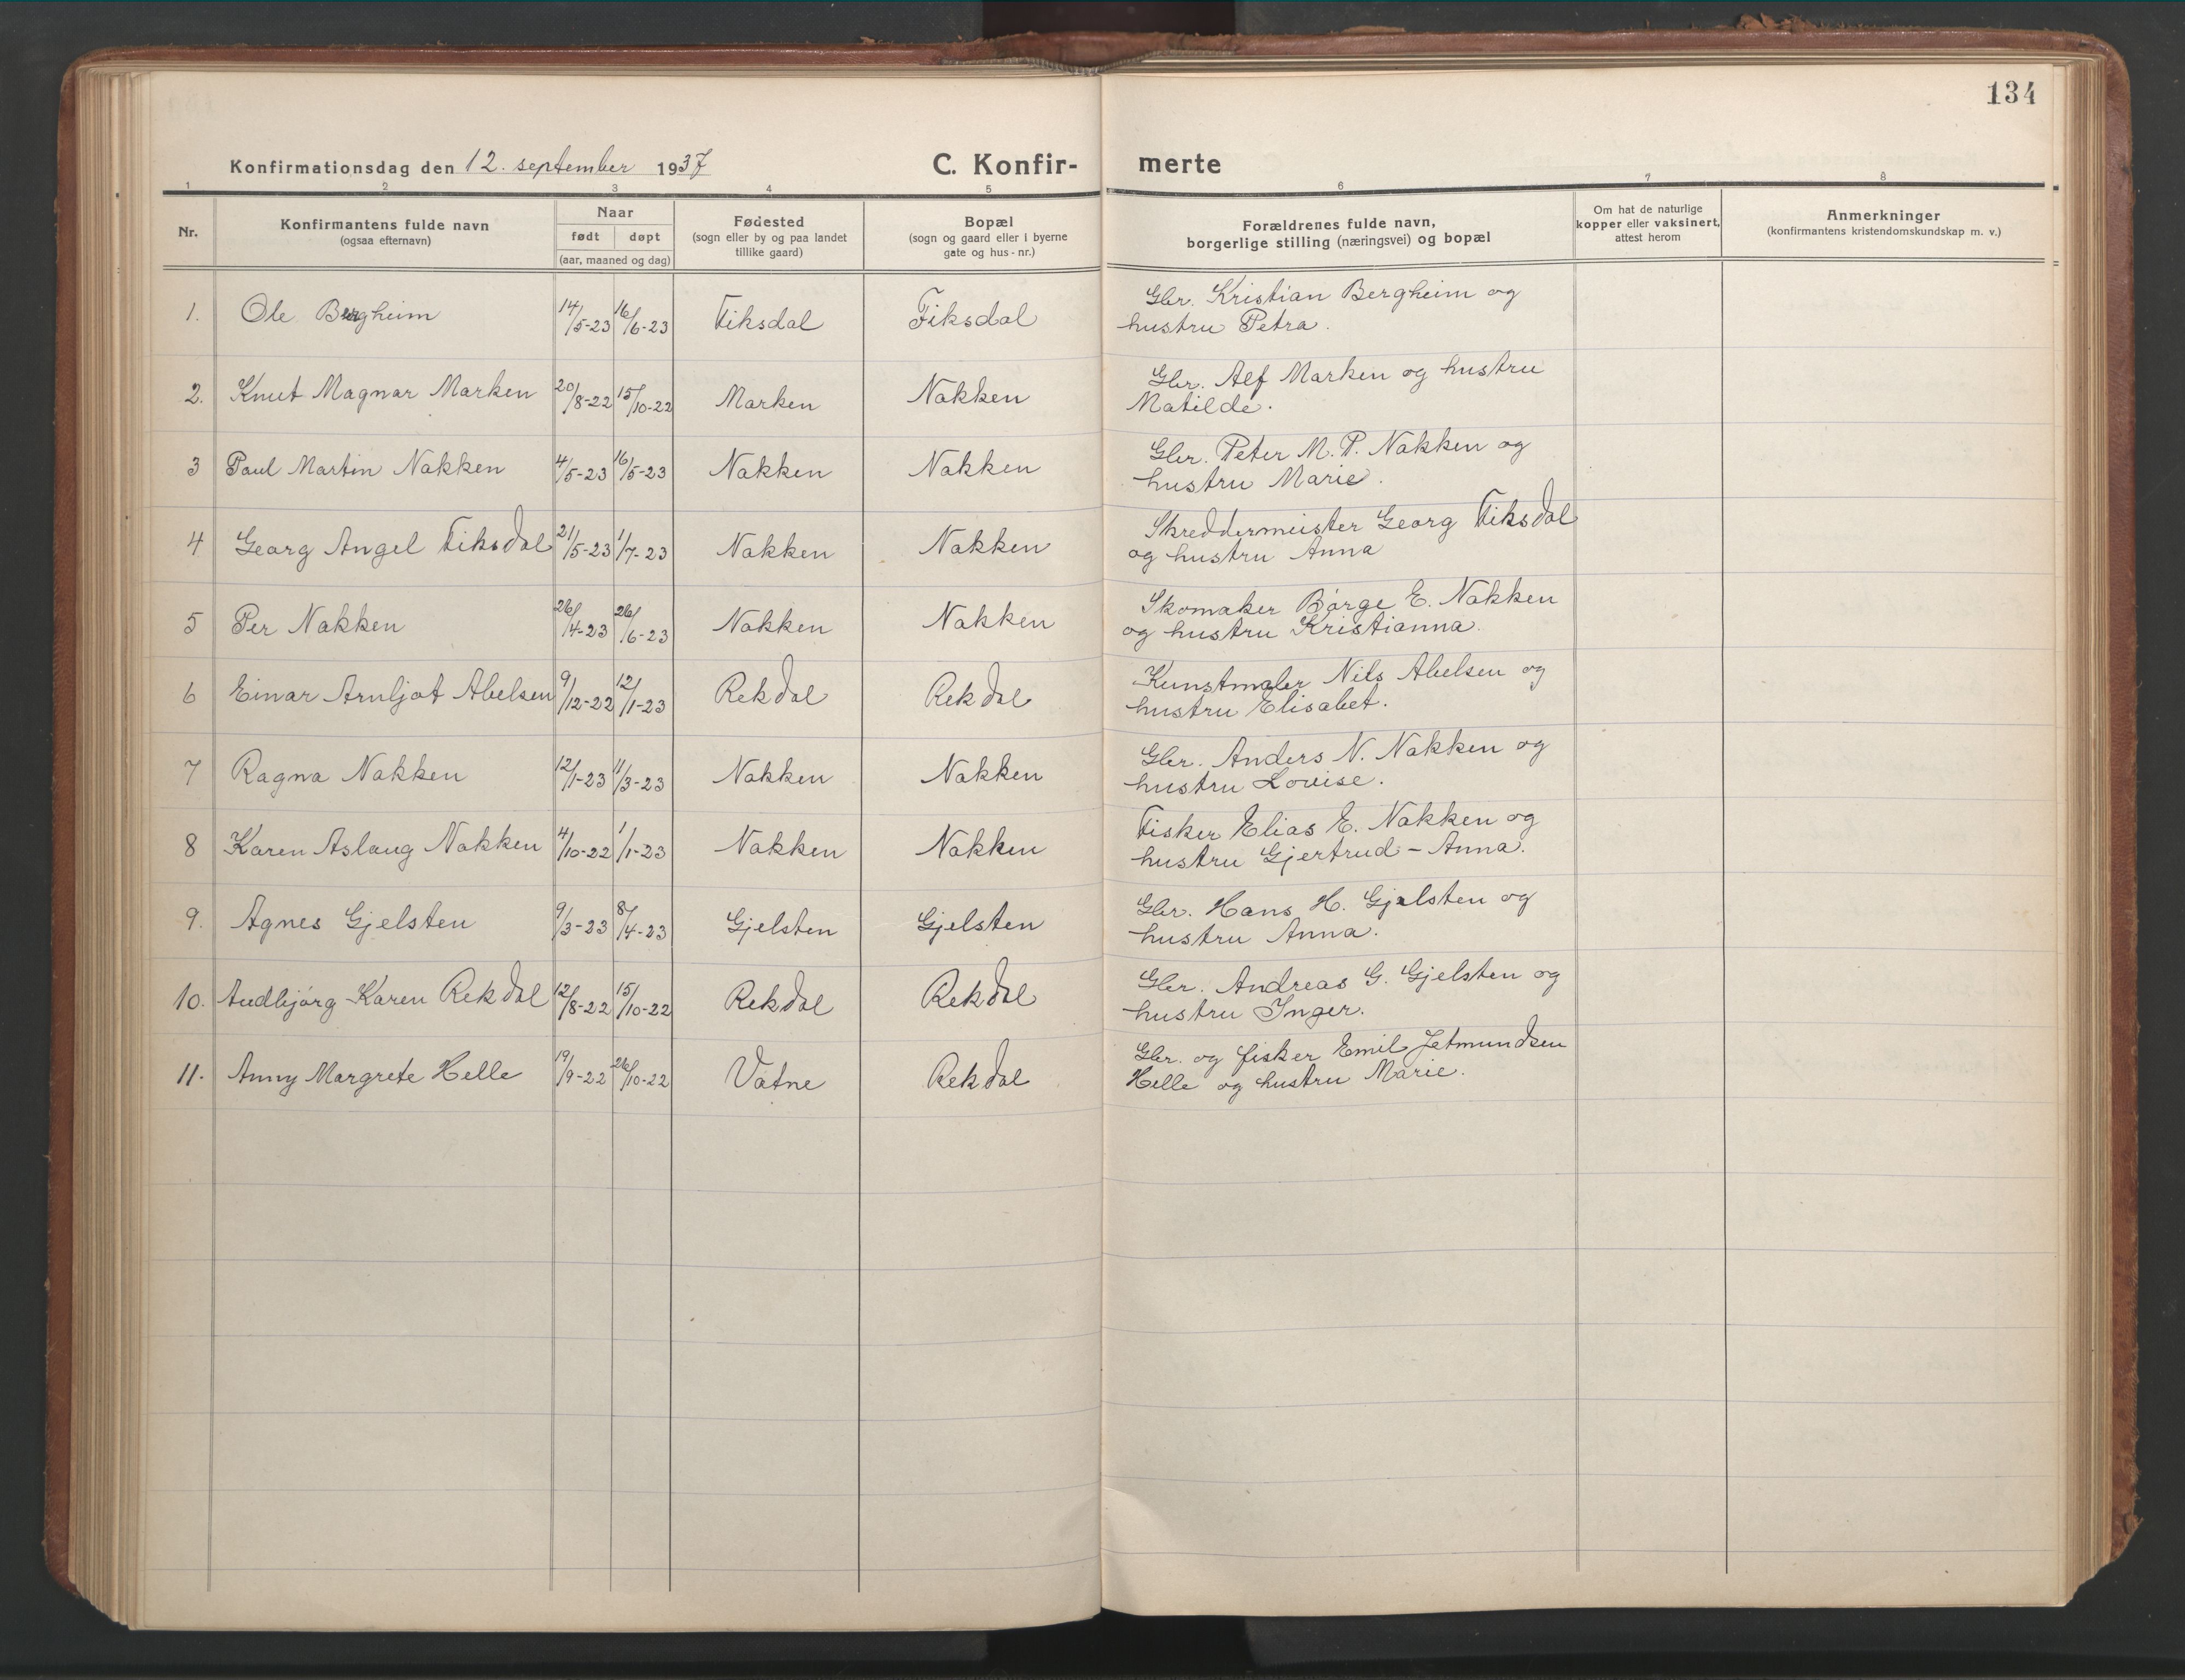 134
Konfirmationsdag den 12. september 1937 C. Konfirmerte
1 2 3 4 5 6 7 8
Nr. Konfirmantens fulde navn (ogsaa efternavn) Naar født døpt (aar, maaned og dag) Fødested (sogn eller by og paa landet tillike gaard) Bopæl (sogn og gaard eller i byerne gate og hus-nr.) Forældrenes fulde navn, borgerlige stilling (næringsvei) og bopæl Om hat de naturlige kopper eller vaksinert, attest herom Anmerkninger (konfirmantens kristendomskundskap m. v.)
1. Ole Bergheim 14/5-23 16/6-23 Fiksdal Fiksdal Gbr. Kristian Bergheim og
hustru Petra.
2. Knut Magnar Marken 20/8-22 15/10-22 Marken Nakken Gbr. Alf Marken og hustru
Matilde.
3 Paul Martin Nakken 4/5-23 16/5-23 Nakken Nakken Gbr. Peter M. P. Nakken og
hustru Marie.
4 Georg Angel Fiksdal 21/5-23 1/7-23 Nakken Nakken Skreddermeister Georg Fiksdal
og hustru Anna
5 Per Nakken 26/4-23 26/6-23 Nakken Nakken Skomaker Børge E. Nakken
og hustru Kristianna.
6 Einar Arnljot Abelsen 9/12-22 12/1-23 Rekdal Rekdal Kunstmaler Nils Abelsen og
hustru Elisabet.
7 Ragna Nakken 12/1-23 11/3-23 Nakken Nakken Gbr. Anders N. Nakken og
hustru Lovise.
8 Karen Aslaug Nakken 4/10-22 1/1-23 Nakken Nakken Fisker Elias E. Nakken og
hustru Gjertrud-Anna.
9. Agnes Gjelsten 9/3-23 8/4-23 Gjelsten Gjelsten Gbr. Hans H. Gjelsten og
hustru Anna.
10. Audbjørg-Karen Rekdal 12/8-22 15/10-22 Rekdal Rekdal Gbr. Andreas G. Gjelsten og
hustru Inger.
11. Anny Margrete Helle 19/9-22 26/10-22 Vatne Rekdal Gbr. og fisker Emil Jetmundsen
Helle og hustru Marie.